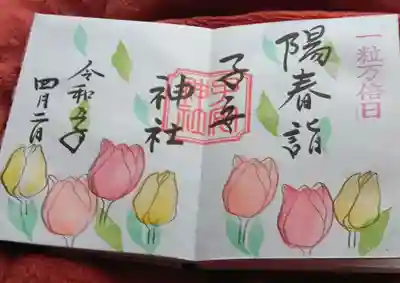 一粒万倍日
陽春詣
子安
神社
令和
四月二日